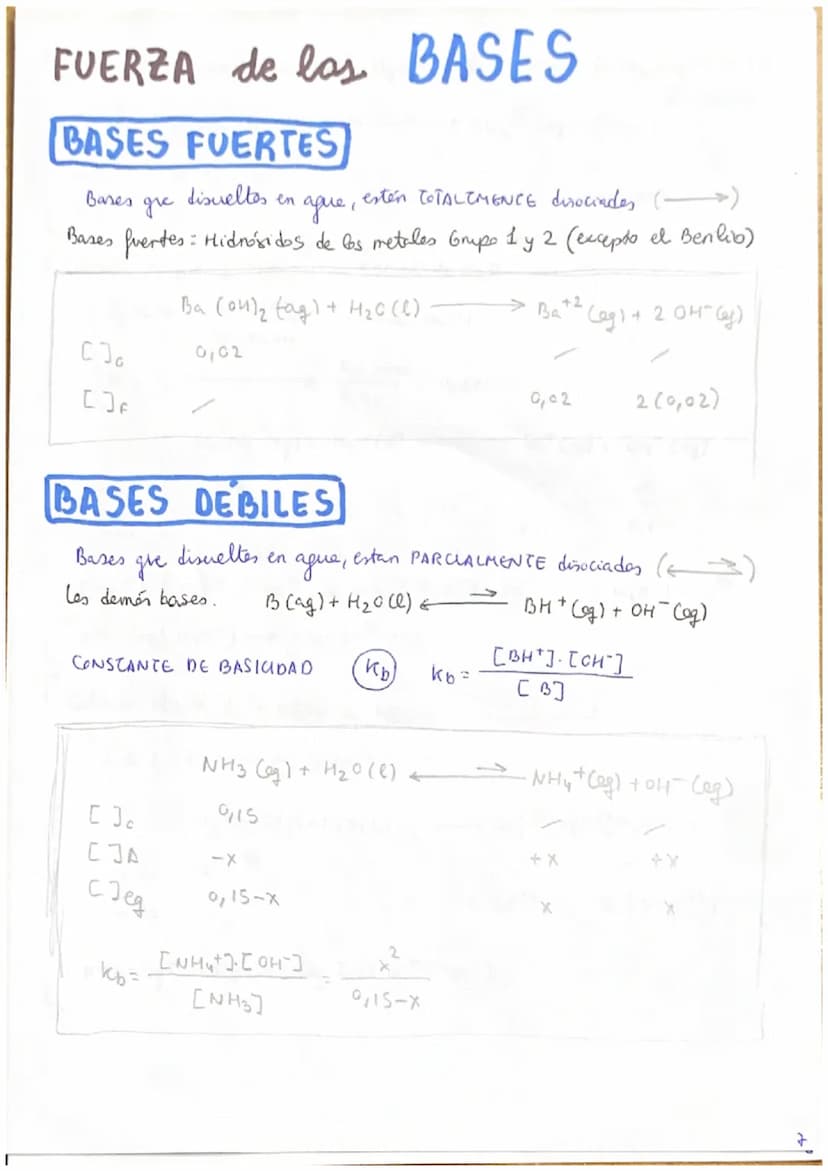 FUERZA de las BASES
BASES FUERTES
Bases que disueltas en agua, están TOTALMENTE disociadas (⟶)
Bases fuertes: Hidróxidos de los metales Grupo 1 y 2 (excepto el Berilio)
Ba(OH)₂ (aq) + H₂O(l) ⟶ Ba⁺² (aq) + 2 OH⁻ (aq)
[ ]₀ 0,02 / /
[ ]F / 0,02 2(0,02)
BASES DÉBILES
Bases que disueltas en agua, estan PARCIALMENTE disociadas (⇌)
Las demás bases. B(aq) + H₂O(l) ⇌ BH⁺(aq) + OH⁻(aq)
CONSTANTE DE BASICIDAD Kb Kb = [BH⁺]·[OH⁻]
[B]
NH₃ (aq) + H₂O(l) ⇌ NH₄⁺(aq) + OH⁻(aq)
[ ]₀ 0,15 / /
[ ]Δ -x +x +x
[ ]eq 0,15-x x x
Kb = [NH₄⁺]·[OH⁻] = x²
[NH₃] 0,15-x
7